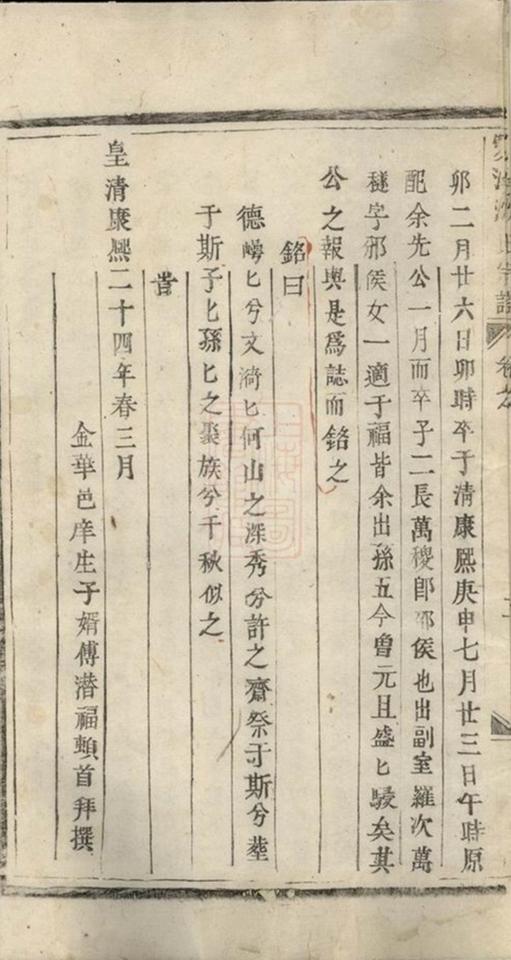 卯二月廿六日卯時卒于清康熙庚申七月廿三日午時原
配余先公一月而卒子二長萬稷卽邪侯也出副室羅次萬
穟字邪侯女一適于福皆余出孫五今曾元且盛匕駸矣其
公之報與是爲誌而銘之
銘曰
德嶹匕兮文漪匕何山之深秀兮許之齋祭于斯兮塟
于斯子匕孫匕之聚族兮千秋似之
旹
皇清康熙二十四年春三月
金華邑庠生子婿傅潜福頓首拜撰